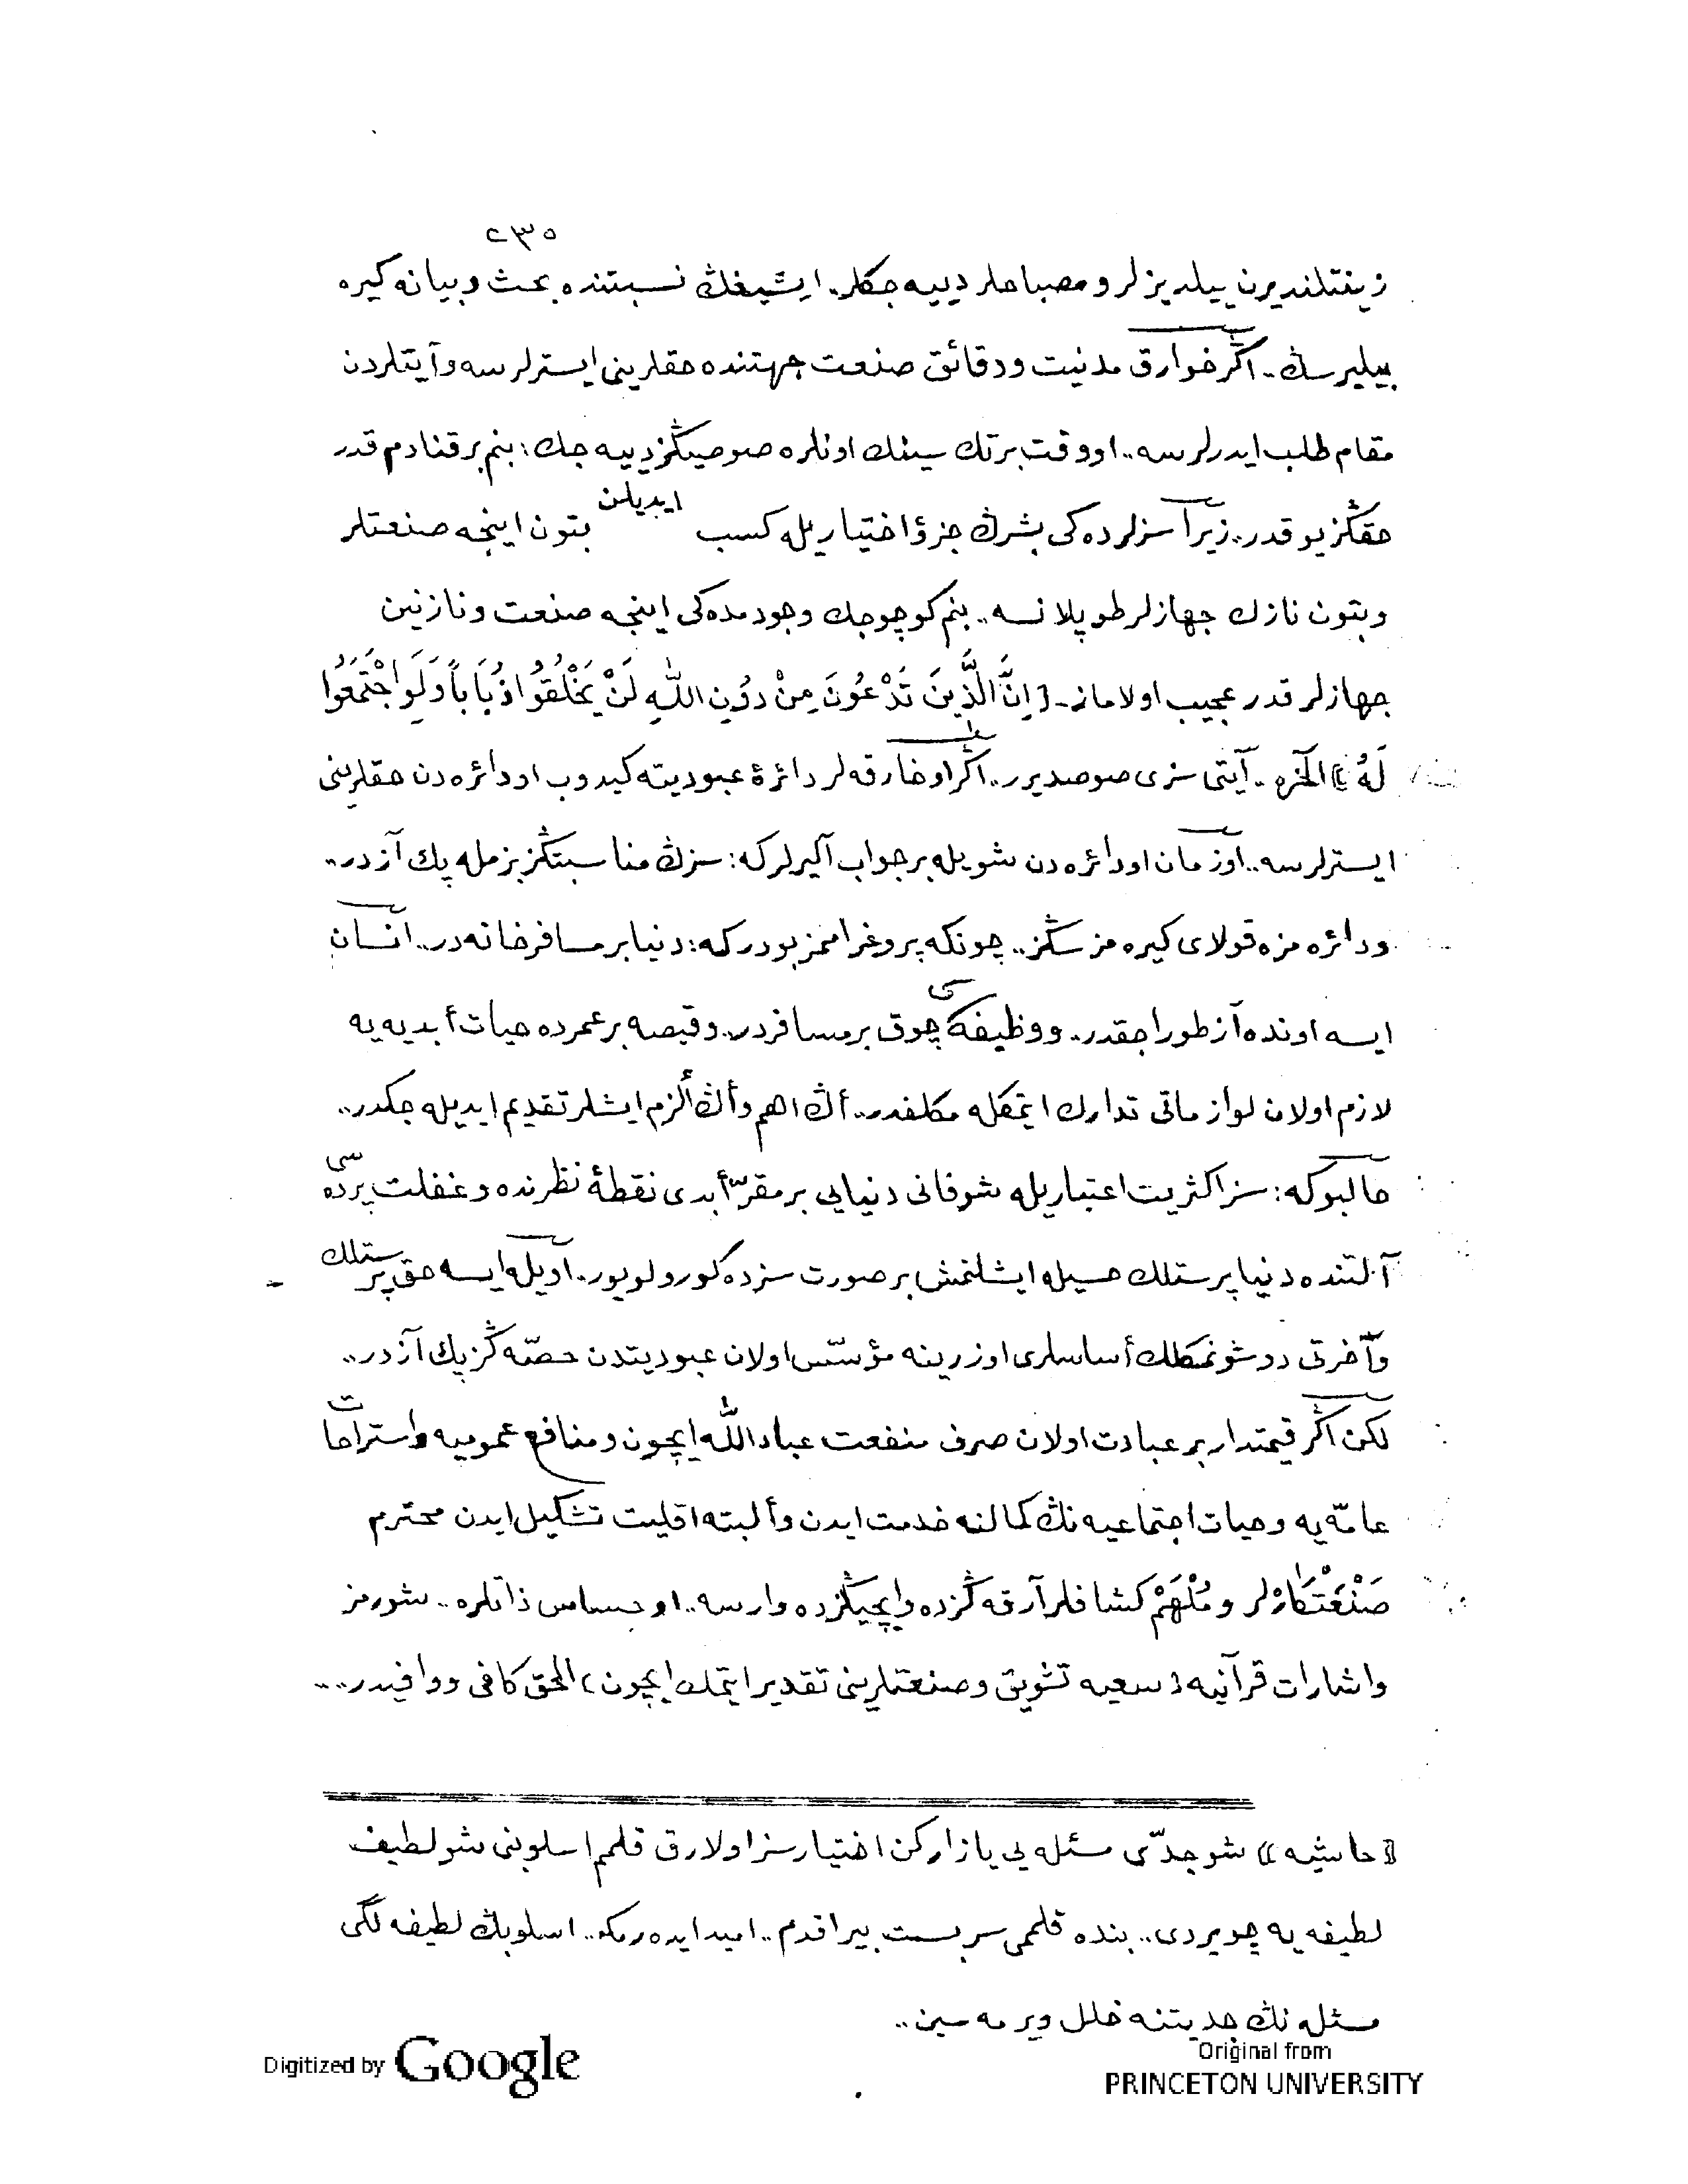 ٢٣٥
زينتلنديرن ييلديزلر و مصباحلر دييه جكلر. ايشيغڭ نسبتنده بحث و بيانه كيره
بيليرسڭ.. اگر خوارق مدنيت و دقائق صنعت جهتنده حقلريني ايسترلرسه و آيتلردن
مقام طلب ايدرلرسه.. او وقت بر تك سينك اونلره صوصيڭز دييه جك: بنم بر قنادم قدر
حقڭز يوقدر.. زيرا سزلرده كى بشرڭ جزؤ اختياريله كسب ايديلن بتون اينجه صنعتلر
و بتون نازك جهازلر طوپلانسه.. بنم كوچوجك وجودمده كى اينجه صنعت و نازنين
جهازلر قدر عجيب اولاماز.. ﴿ اِنَّ الَّذِينَ تَدْعُونَ مِنْ دُونِ اللّٰهِ لَنْ يَخْلُقُوا ذُبَاباً وَلَوِ اجْتَمَعُوا
لَهُ ﴾ الخره.. آيتى سزى صوصديرر.. اگر او خارقه لر دائرۀ عبوديته كيدوب او دائره دن حقلرينى
ايسترلرسه.. او زمان او دائره دن شويله بر جواب آليرلر كه: سزڭ مناسبتڭز بزمله پك آزدر..
و دائره مزه قولاى كيره مزسڭز.. چونكه پروغرامز بودر كه: دنيا بر مسافرخانه در.. انسان
ايسه اونده آز طوراجقدر.. و وظيفه سى چوق بر مسافردر.. و قيصه بر عمرده حيات أبديه يه
لازم اولان لوازماتى تدارك ايتمكله مكلفدر.. أڭ اهم و أڭ ألزم ايشلر تقديم ايديله جكدر..
حالبوكه: سز اكثريت اعتباريله شو فانى دنيايى بر مقرّ أبدى نقطۀ نظرنده و غفلت پرده سى
آلتنده دنيا پرستلك حسيله ايشلنمش بر صورت سزده كورولويور.. اويله ايسه حق پرستلك
و آخرتى دوشونمكلك أساسلرى اوزرينه مؤسّس اولان عبوديتدن حصّه ڭز پك آزدر..
لكن اگر قيمتدار بر عبادت اولان صرف منفعت عباد اللّٰه ايچون و منافع عموميه و استراحات
عامّه يه و حيات اجتماعيه نڭ كمالنه خدمت ايدن و ألبته اقليت تشكيل ايدن محترم
صَنْعَتْكَارْلر و مُلْهَمْ كشافلر آرقه ڭزده و ايچيڭزده وارسه.. او حساس ذاتلره.. شو رمز
و اشارات قرآنيه ﴿ سعيه تشويق و صنعتلرينى تقدير ايتمك ايچون ﴾ الحق كافى و وافيدر...
﴿ حاشيه ﴾ شو جدّى مسئله يى يازاركن اختيارسز اولارق قلمم اسلوبنى شو لطيف
لطيفه يه چويردى.. بنده قلممى سربست بيراقدم.. اميد ايده رمكه.. اسلوبڭ لطيفه لگى
مسئله نڭ جديتنه خلل ويرمه سين..
Digitized by Google
Original from
PRINCETON UNIVERSITY